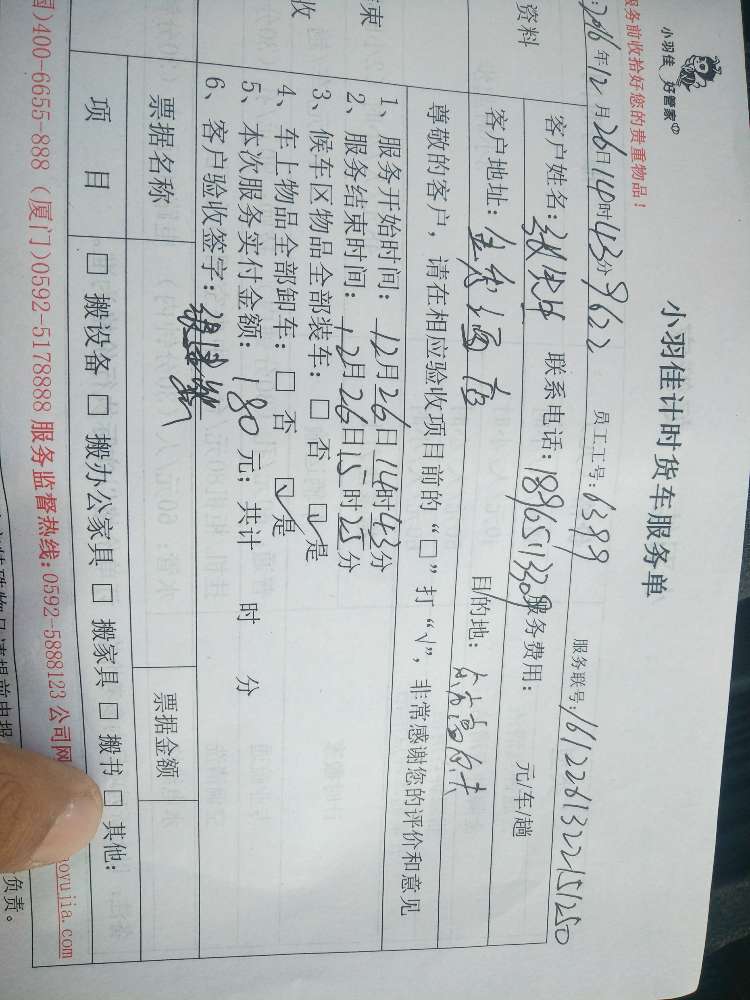 小羽佳 好管家
小羽佳计时货车服务单
服务前收拾好您的贵重物品！
2016年12月26日14时43分 9622 员工工号：6399 服务联号：1612261322151250
资料
客户姓名： 联系电话：18965133 服务费用： 元/车/趟
客户地址： 目的地：
尊敬的客户，请在相应验收项目前的“□”打“√”，非常感谢您的评价和意见
1、服务开始时间：12月26日14时43分
2、服务结束时间：12月26日15时25分
3、候车区物品全部装车：□ 否 ☑ 是
4、车上物品全部卸车：□ 否 ☑ 是
5、本次服务实付金额：180元；共计 时 分
6、客户验收签字：
束
收
票据名称 票据金额
项 目 □ 搬设备 □ 搬办公家具 □ 搬家具 □ 搬书 □ 其他：
)400-6655-888（厦门)0592-5178888 服务监督热线：0592-5888123 公司网 oyujia.com
负责。